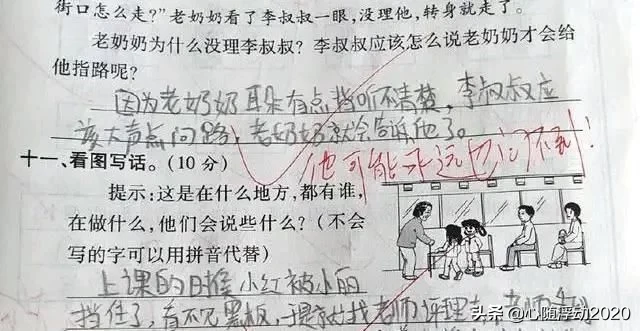 街口怎么走?”老奶奶看了李叔叔一眼,没理他,转身就走了。
老奶奶为什么没理李叔叔?李叔叔应该怎么说老奶奶才会给
他指路呢?
因为老奶奶耳朵有点挡听不清楚,李叔叔应
该大声点问路,老奶奶就会告诉他了。
他可能永远也问不到!
十一、看图写话。(10分)
提示:这是在什么地方,都有谁,
在做什么,他们会说些什么?(不会
写的字可以用拼音代替)
上课的日候小红被小丽
挡住了,看不见黑板,于是就找老师评理去,老师
头条 @心随浮动2020